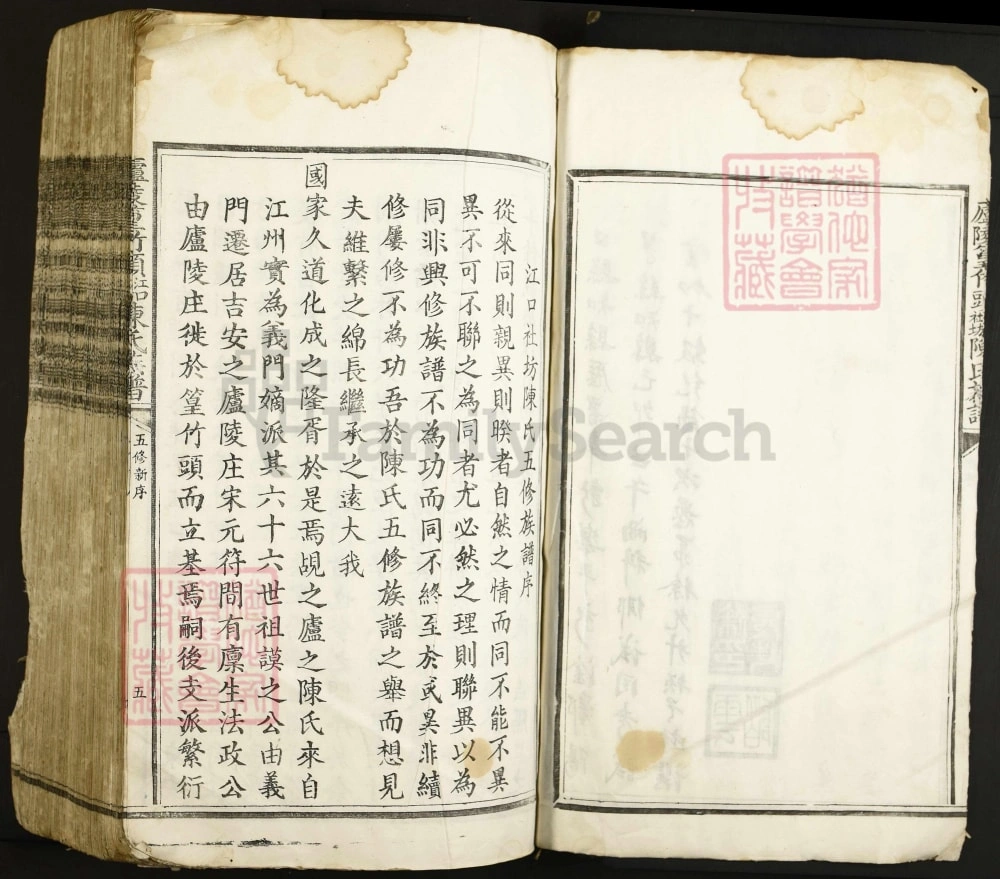 廬陵篁竹頭社坊陳氏族譜
江口社坊陳氏五修族譜序
從來同則親異則暌者自然之情而同不能不異
異不可不聯之為同者尤必然之理則聯異以為
同非興修族譜不為功而同不終至於或異非續
修屢修不為功吾於陳氏五修族譜之舉而想見
夫維繫之綿長繼承之遠大我
國家久道化成之隆胥於是焉覘之廬之陳氏來自
江州實為義門嫡派其六十六世祖謨之公由義
門遷居吉安之廬陵庄宋元符間有廩生法政公
由廬陵庄徙於篁竹頭而立基焉嗣後支派繁衍
五修新序
五
譜學會
FamilySearch